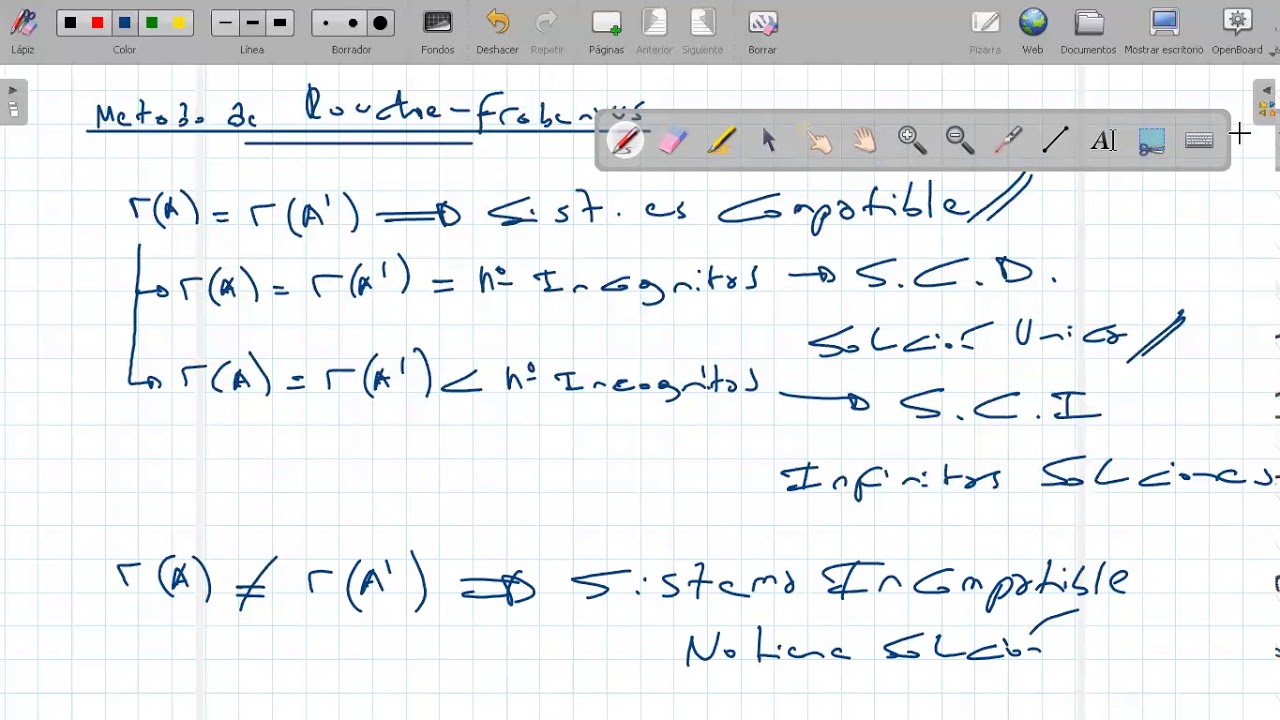 Lápiz Color Línea Borrador Fondos Deshacer Repetir Páginas Anterior Siguiente Borrar Pizarra Web Documentos Mostrar escritorio OpenBoard
Metodo de Rouche-Frobenius
r(A) = r(A') ⟹ Sist. es Compatible //
r(A) = r(A') = nº Incognitas → S.C.D.
Solcion Unica //
r(A) = r(A') < nº Incognitas → S.C.I
Infinitas Solciones
r(A) ≠ r(A') ⟹ Sistema Incompatible
No tiene Solción